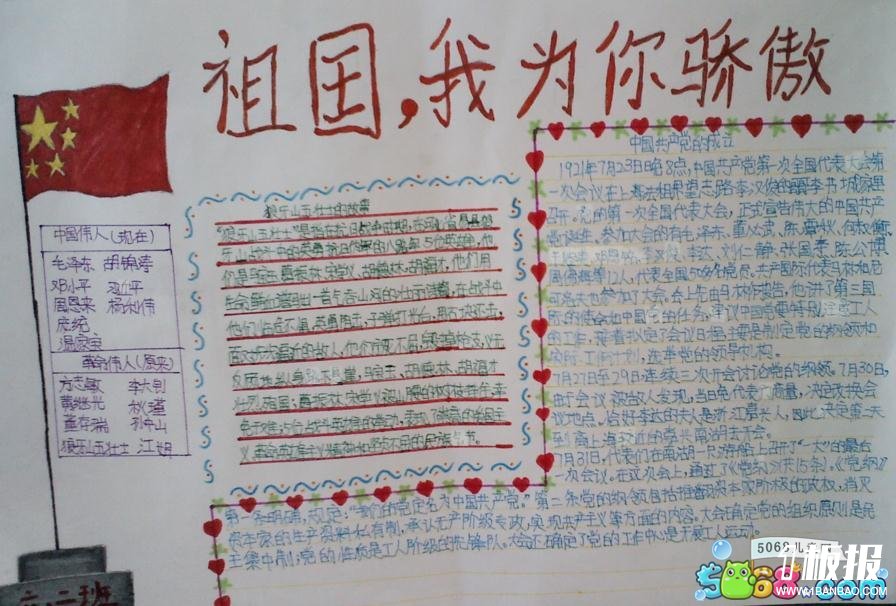 祖国,我为你骄傲
中国伟人(现在)
毛泽东 胡锦涛
邓小平 习近平
周恩来 杨利伟
庞统
温家宝
革命伟人(原来)
方志敏 李大钊
黄继光 秋瑾
董存瑞 孙中山
狼牙山五壮士 江姐
狼牙山五壮士的故事
"狼牙山五壮士"是指在抗日战争时期,在河北省易县狼
牙山战斗中英勇抗日
胡德林、胡福才,他们用
生命和鲜血谱写出一首气吞山河的壮丽诗篇,在战斗中
他们临危不惧,英勇阻击,子弹打光后,用石块还击,
面对步步逼近的敌人,他们宁死不屈,毁掉枪支,义无
反顾地纵身跳下悬崖,马宝玉、胡德林、胡福才
壮烈殉国;葛振林、宋学义被山腰的树枝挂住,幸
免于难。
义、革命英雄主义精神和坚贞不屈的民族气节。
中国共产党的成立
1921年7月23日晚8点,中国共产党第一次全国代表大会第
一次会议在上海法租界望志路李汉俊的哥哥李书城家里
召开。党的第一次全国代表大会,正式宣告伟大的中国共产
党诞生。参加大会的有毛泽东、董必武、陈潭秋、何叔衡、
李达、刘仁静、张国焘、陈公博、
周佛海等12人,代表全国50多名党员。共产国际代表马林和尼
可洛夫也参加了大会。会上先由马林作报告,他讲了第三国
际的使命和中国党的任务,建议中国党要特别注意工人
的工作,接着拟定了会议日程,主要是制定党的纲领和
实际工作计划,选举党的领导机构。
7月27日至29日,连续三次开会讨论党的纲领。7月30日,
由于会议被敌人发现,当日免代表
会议地点。恰好李达的夫人是浙江嘉兴人,因此决定第二天
到离上海较近的嘉兴南湖去开会。
7月31日,代表们在南湖一只游船上召开了"一大"的最后
一次会议。在这次会上,通过了《党纲》(共15条)。《党纲》
第一条明确规定:"我们的党定名为中国共产党。"第二条党的纲领包括推翻资本家阶级的政权,消灭
资本家的生产资料私有制,承认无产阶级专政,实现共产主义等方面的内容。大会确定党的组织原则是民
主集中制;党的性质是工人阶级的先锋队。大会还确定了党的工作中心是开展工人运动。
六、二班
5068儿童网
5068.com
板报
WWW.1BANBAO.COM